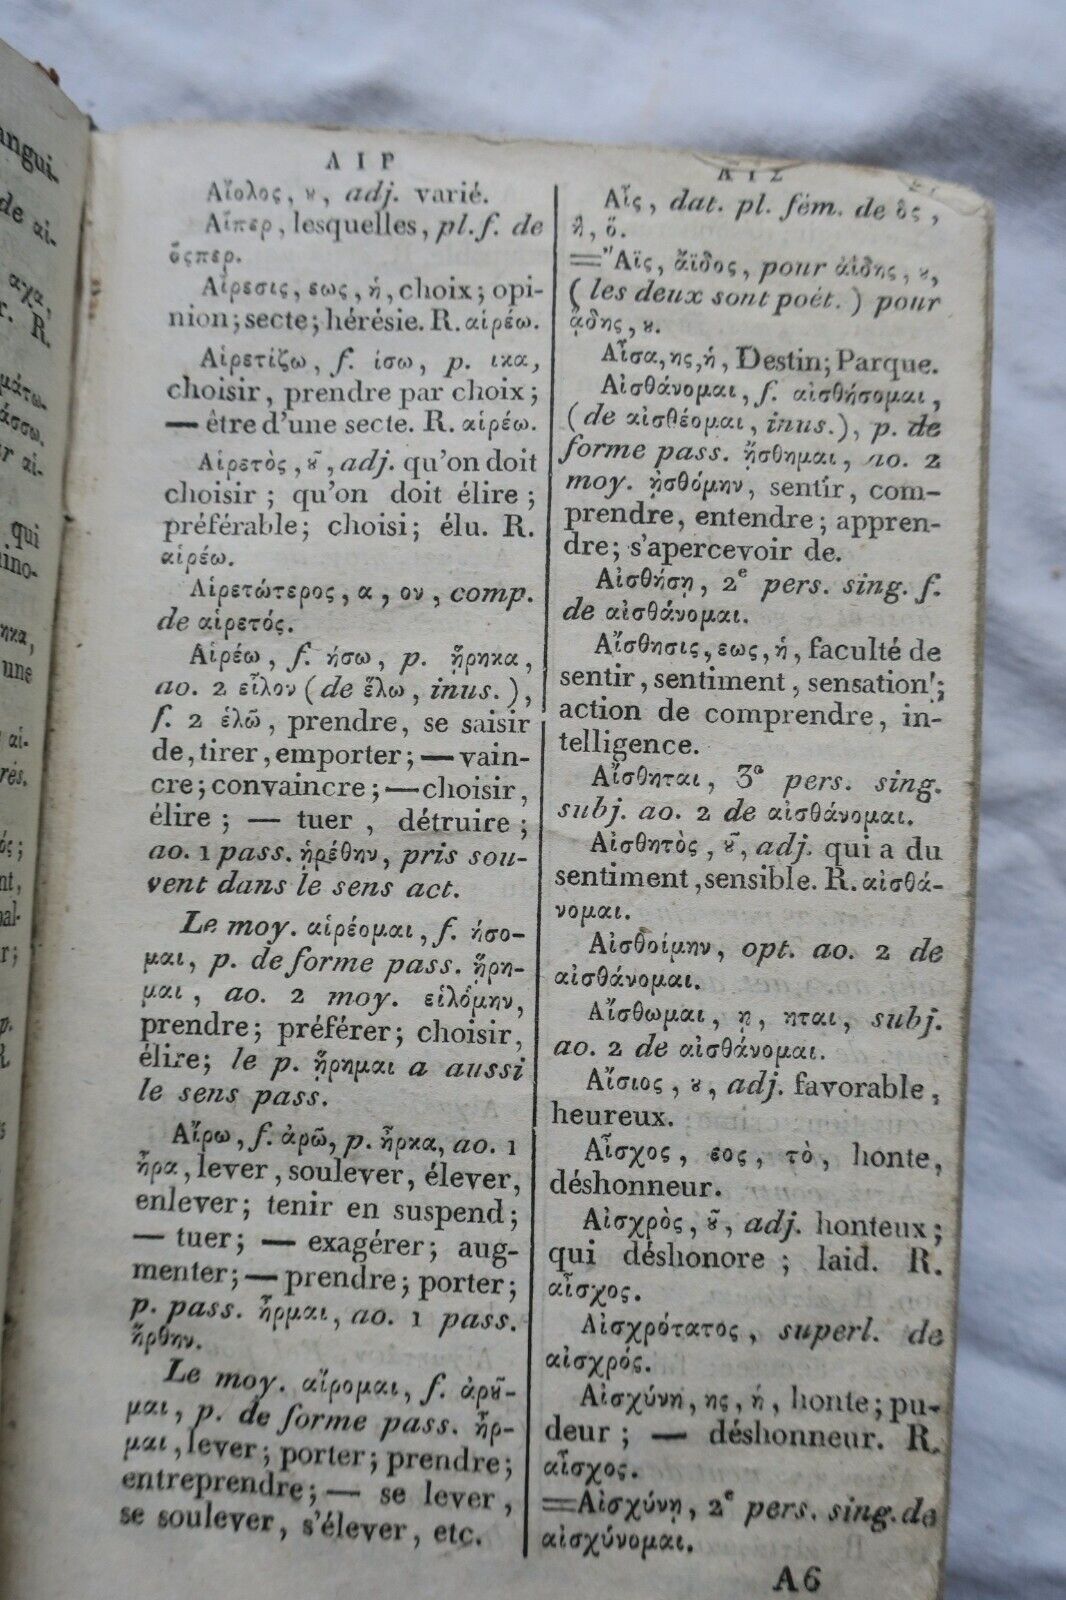 ΑΙΡ
Αἴολος, ȣ, adj. varié.
Αἵπερ, lesquelles, pl. f. de
ὅςπερ.
Αἵρεσις, εως, ἡ, choix; opi-
nion; secte; hérésie. R. αἱρέω.
Αἱρετίζω, f. ίσω, p. ικα,
choisir, prendre par choix;
— être d'une secte. R. αἱρέω.
Αἱρετὸς, ȣ͂, adj. qu'on doit
choisir; qu'on doit élire;
préférable; choisi; élu. R.
αἱρέω.
Αἱρετώτερος, α, ον, comp.
de αἱρετός.
Αἱρέω, f. ήσω, p. ᾕρηκα,
ao. 2 εἷλον (de ἕλω, inus.),
f. 2 ἑλῶ, prendre, se saisir
de, tirer, emporter; — vain-
cre; convaincre; — choisir,
élire; — tuer, détruire;
ao. 1 pass. ᾑρέθην, pris sou-
vent dans le sens act.
Le moy. αἱρέομαι, f. ήσο-
μαι, p. de forme pass. ᾕρη-
μαι, ao. 2 moy. εἱλόμην,
prendre; préférer; choisir,
élire; le p. ᾕρημαι a aussi
le sens pass.
Αἴρω, f. ἀρῶ, p. ἦρκα, ao. 1
ἦρα, lever, soulever, élever,
enlever; tenir en suspend;
— tuer; — exagérer; aug-
menter; — prendre; porter;
p. pass. ἦρμαι, ao. 1 pass.
ἤρθην.
Le moy. αἴρομαι, f. ἀρȣ͂-
μαι, p. de forme pass. ἦρ-
μαι, lever; porter; prendre;
entreprendre; — se lever,
se soulever, s'élever, etc.
ΑΙΣ
Αἷς, dat. pl. fém. de ὃς,
ἣ, ὅ.
= Ἄϊς, ἄϊδος, pour ἀίδης, ȣ,
(les deux sont poét.) pour
ᾅδης, ȣ.
Αἶσα, ης, ἡ, Destin; Parque.
Αἰσθάνομαι, f. αἰσθήσομαι,
(de αἰσθέομαι, inus.), p. de
forme pass. ᾔσθημαι, ao. 2
moy. ᾐσθόμην, sentir, com-
prendre, entendre; appren-
dre; s'apercevoir de.
Αἰσθήσῃ, 2e pers. sing. f.
de αἰσθάνομαι.
Αἴσθησις, εως, ἡ, faculté de
sentir, sentiment, sensation;
action de comprendre, in-
telligence.
Αἴσθηται, 3e pers. sing.
subj. ao. 2 de αἰσθάνομαι.
Αἰσθητὸς, ȣ͂, adj. qui a du
sentiment, sensible. R. αἰσθά-
νομαι.
Αἰσθοίμην, opt. ao. 2 de
αἰσθάνομαι.
Αἴσθωμαι, ῃ, ηται, subj.
ao. 2 de αἰσθάνομαι.
Αἴσιος, ȣ, adj. favorable,
heureux.
Αἶσχος, εος, τὸ, honte,
déshonneur.
Αἰσχρὸς, ȣ͂, adj. honteux;
qui déshonore; laid. R.
αἶσχος.
Αἰσχρότατος, superl. de
αἰσχρός.
Αἰσχύνη, ης, ἡ, honte; pu-
deur; — déshonneur. R.
αἶσχος.
= Αἰσχύνῃ, 2e pers. sing. de
αἰσχύνομαι.
A6